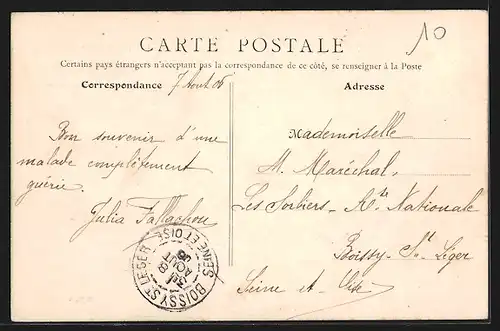 10
CARTE POSTALE
Certains pays étrangers n'acceptant pas la correspondance de ce côté, se renseigner à la Poste
Correspondance
7 Aout 08
Adresse
Bon souvenir d'une
malade complètement
guérie.
Julia
Mademoiselle
M. Maréchal,
Les Sorbiers - Rte Nationale
Boissy - St Léger
Seine et Oise
BOISSY ST LEGER
SEINE ET OISE
8
AOUT
08